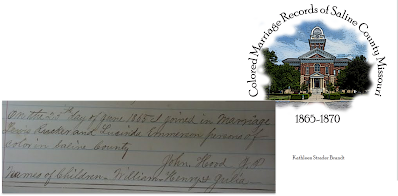 Colored Marriage Records of Saline County Missouri
1865-1870
Kathleen Strader Brandt
On the 25th day of June 1865 I joined in Marriage
and Lucinda persons of
color in Saline County
John Hood J.P.
Names of Children. William Henry & Julia